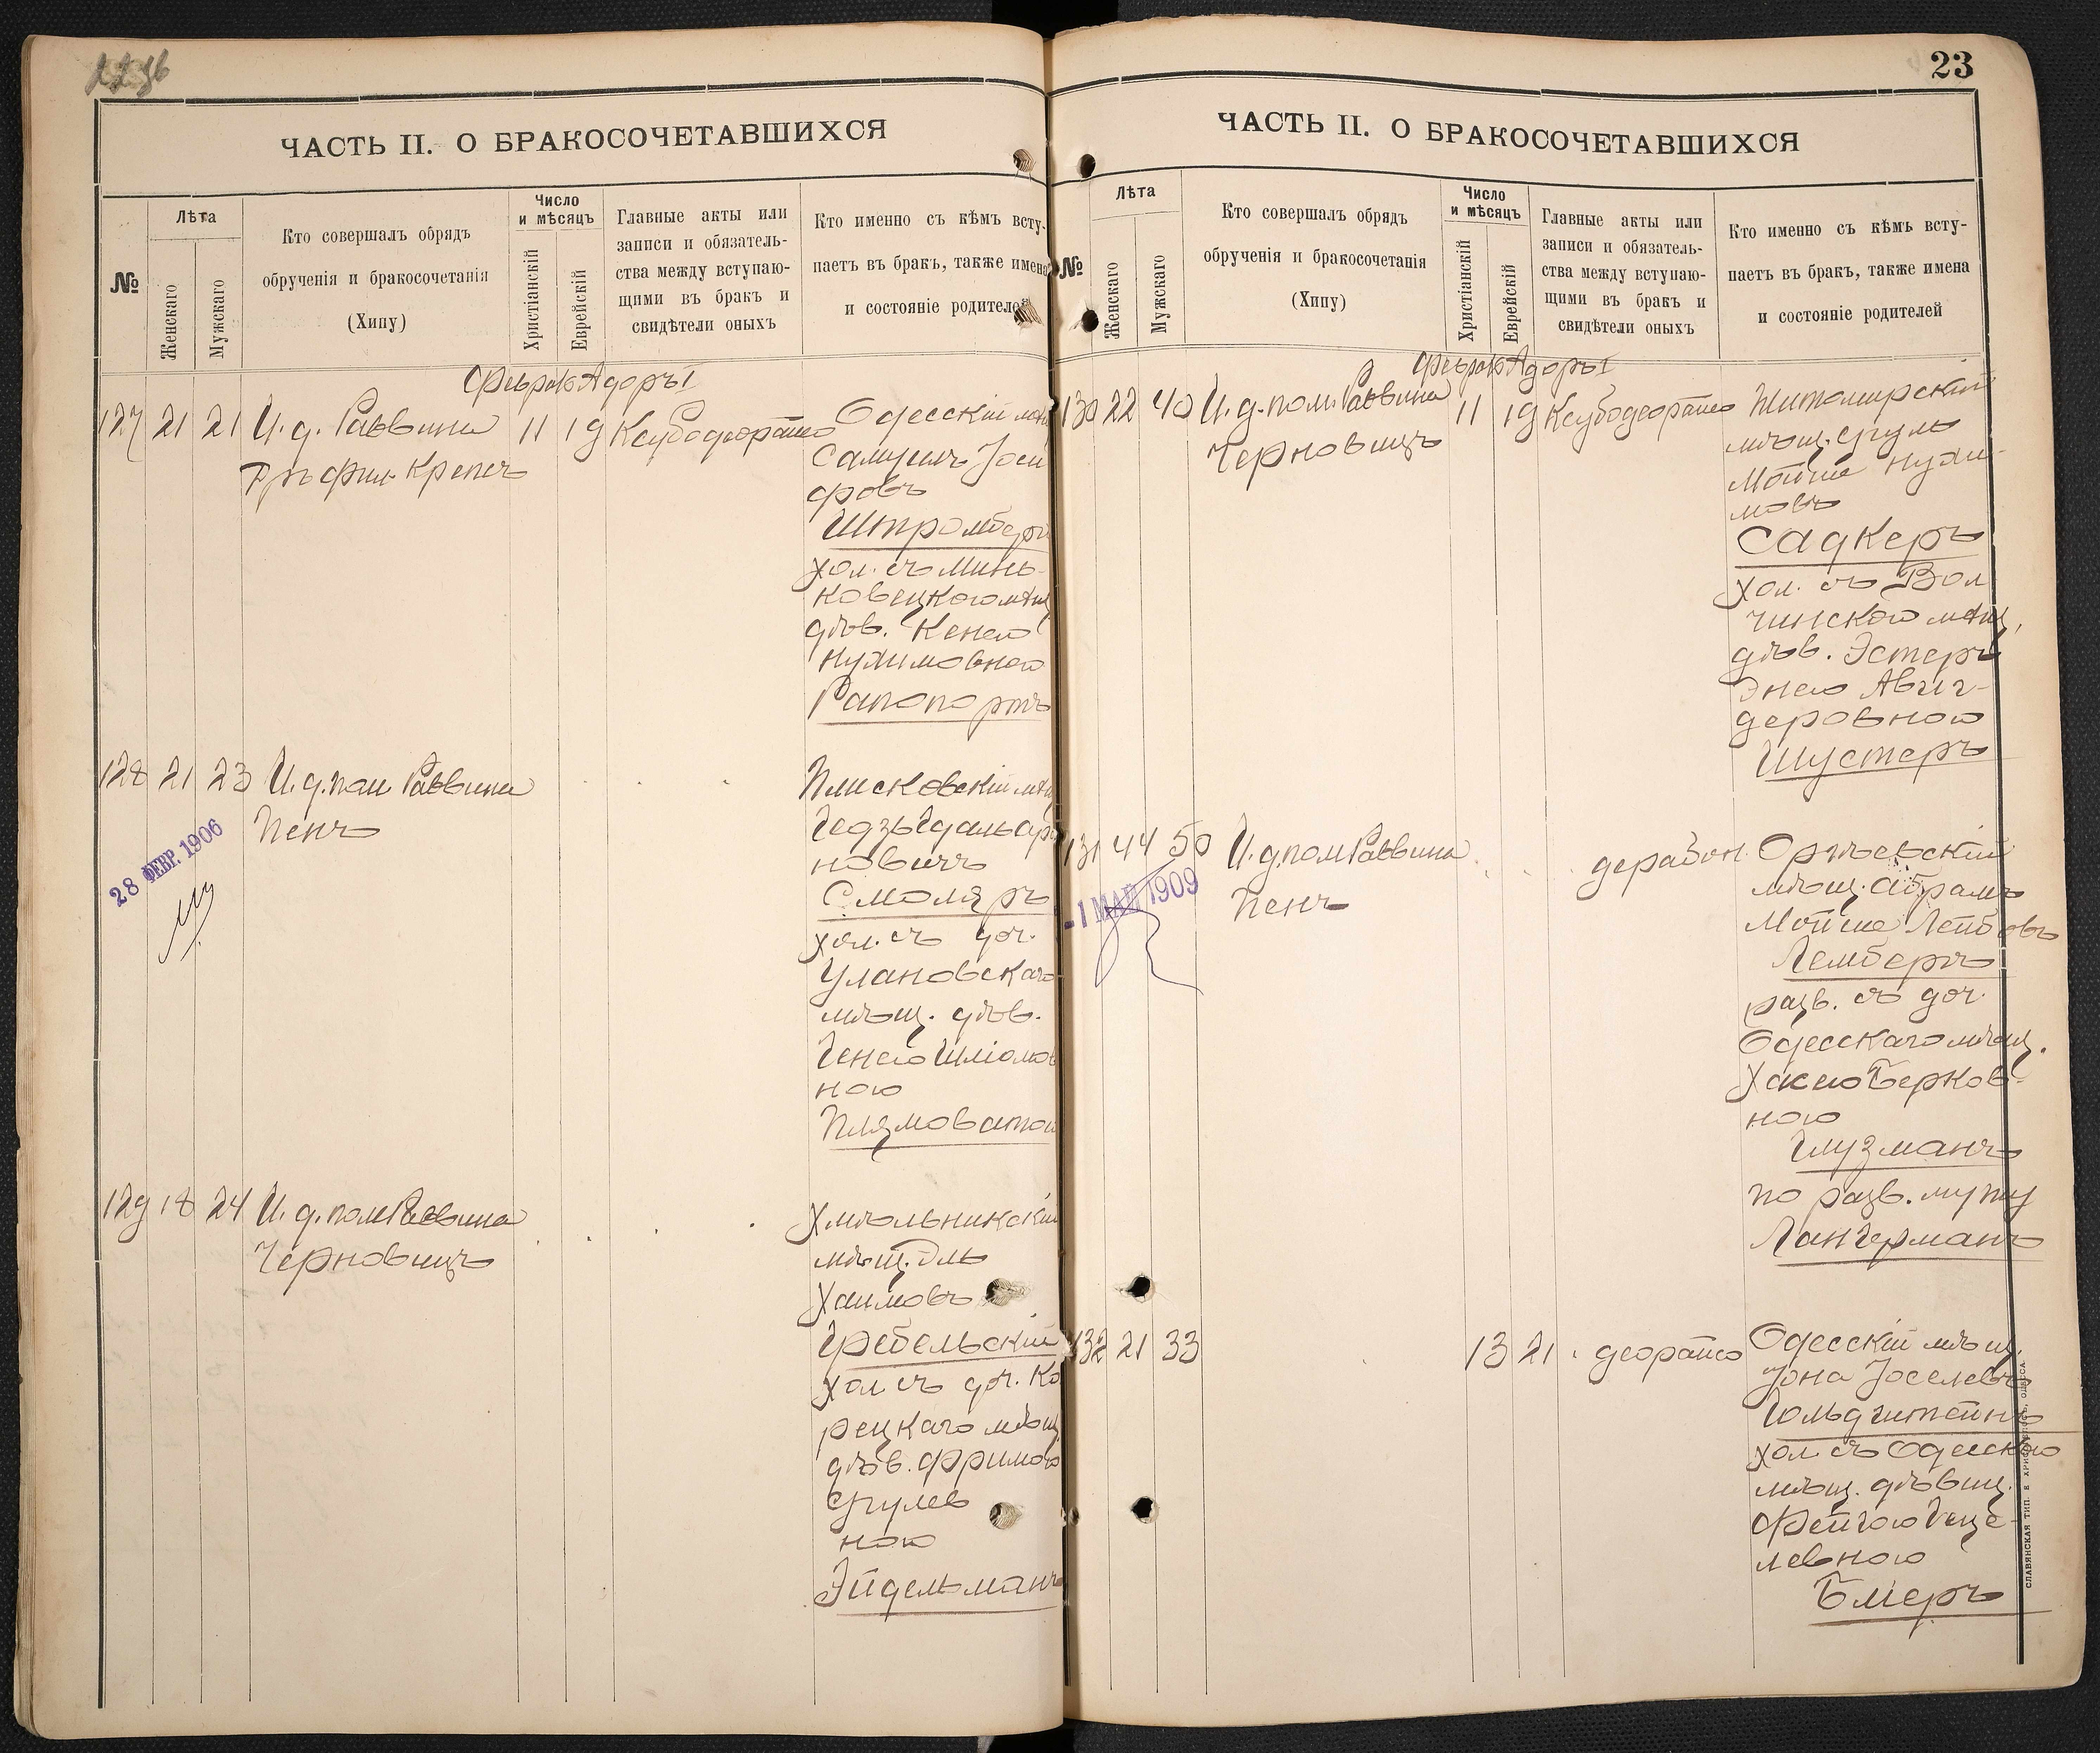 ЧАСТЬ II. О БРАКОСОЧЕТАВШИХСЯ
№
Лѣта
Женскаго
Мужскаго
Кто совершалъ обрядъ
обрученія и бракосочетанія
(Хипу)
Число
и мѣсяцъ
Христіанскій
Еврейскій
Главные акты или
записи и обязатель-
ства между вступаю-
щими въ бракъ и
свидѣтели оныхъ
Кто именно съ кѣмъ всту-
паетъ въ бракъ, также имена
и состояніе родителей
Адоръ I
127 21 21 И. д. Раввина
Крепсъ
11 19
Одесскій
Самуилъ Іоси
фовъ
Штромберг
хол. съ Минь-
ковецкою мѣщ
дѣв. Кенею
Нухимовною
Рапопортъ
128 21 23 И. д. пом. Раввина
Пенъ
28 ФЕВР. 1906
Плисковскій мѣщ
Смоляръ
хол. съ доч.
Улановскаго
мѣщ. дѣв.
Генею Шліомов
ною
Плямоватой
129 18 24 И. д. пом Раввина
Черновицъ
Хмѣльникскій
мѣщ.
Хаимовъ
Гребельскій
хол съ доч. Ко
рецкаго мѣщ
дѣв. Фримою
Сруlев
ною
Эйдельманъ
23
ЧАСТЬ II. О БРАКОСОЧЕТАВШИХСЯ
№
Лѣта
Женскаго
Мужскаго
Кто совершалъ обрядъ
обрученія и бракосочетанія
(Хипу)
Число
и мѣсяцъ
Христіанскій
Еврейскій
Главные акты или
записи и обязатель-
ства между вступаю-
щими въ бракъ и
свидѣтели оныхъ
Кто именно съ кѣмъ всту-
паетъ въ бракъ, также имена
и состояніе родителей
Адоръ I
130 22 40 И. д. пом. Раввина
Черновицъ
11 19
Житомирскій
мѣщ. Сруль
Мойше Нухи-
мовъ
Садкеръ
хол. съ Вол
чинскою мѣщ,
дѣв. Эстеръ
Энею Авиг-
деровною
Шустеръ
131 44 50 И. д. пом Раввина
Пенъ
-1 МАЯ 1909
мѣщ. Абрамъ
Мойше Лейбовъ
Лембергъ
разв. съ доч.
Одесскаго мѣщ.
Хаею Берков-
ною
Глузманъ
по разв. мужу
Лангерманъ
132 21 33
13 21
Одесскій мѣщ.
Іона Іоселевъ
Гольдштейнъ
хол съ Одесскою
мѣщ. дѣвиц.
Фейгою Геце-
левною
Бмеръ
СЛАВЯНСКАЯ ТИП. Е ХРИСОГЕЛОСЪ, ОДЕССА.